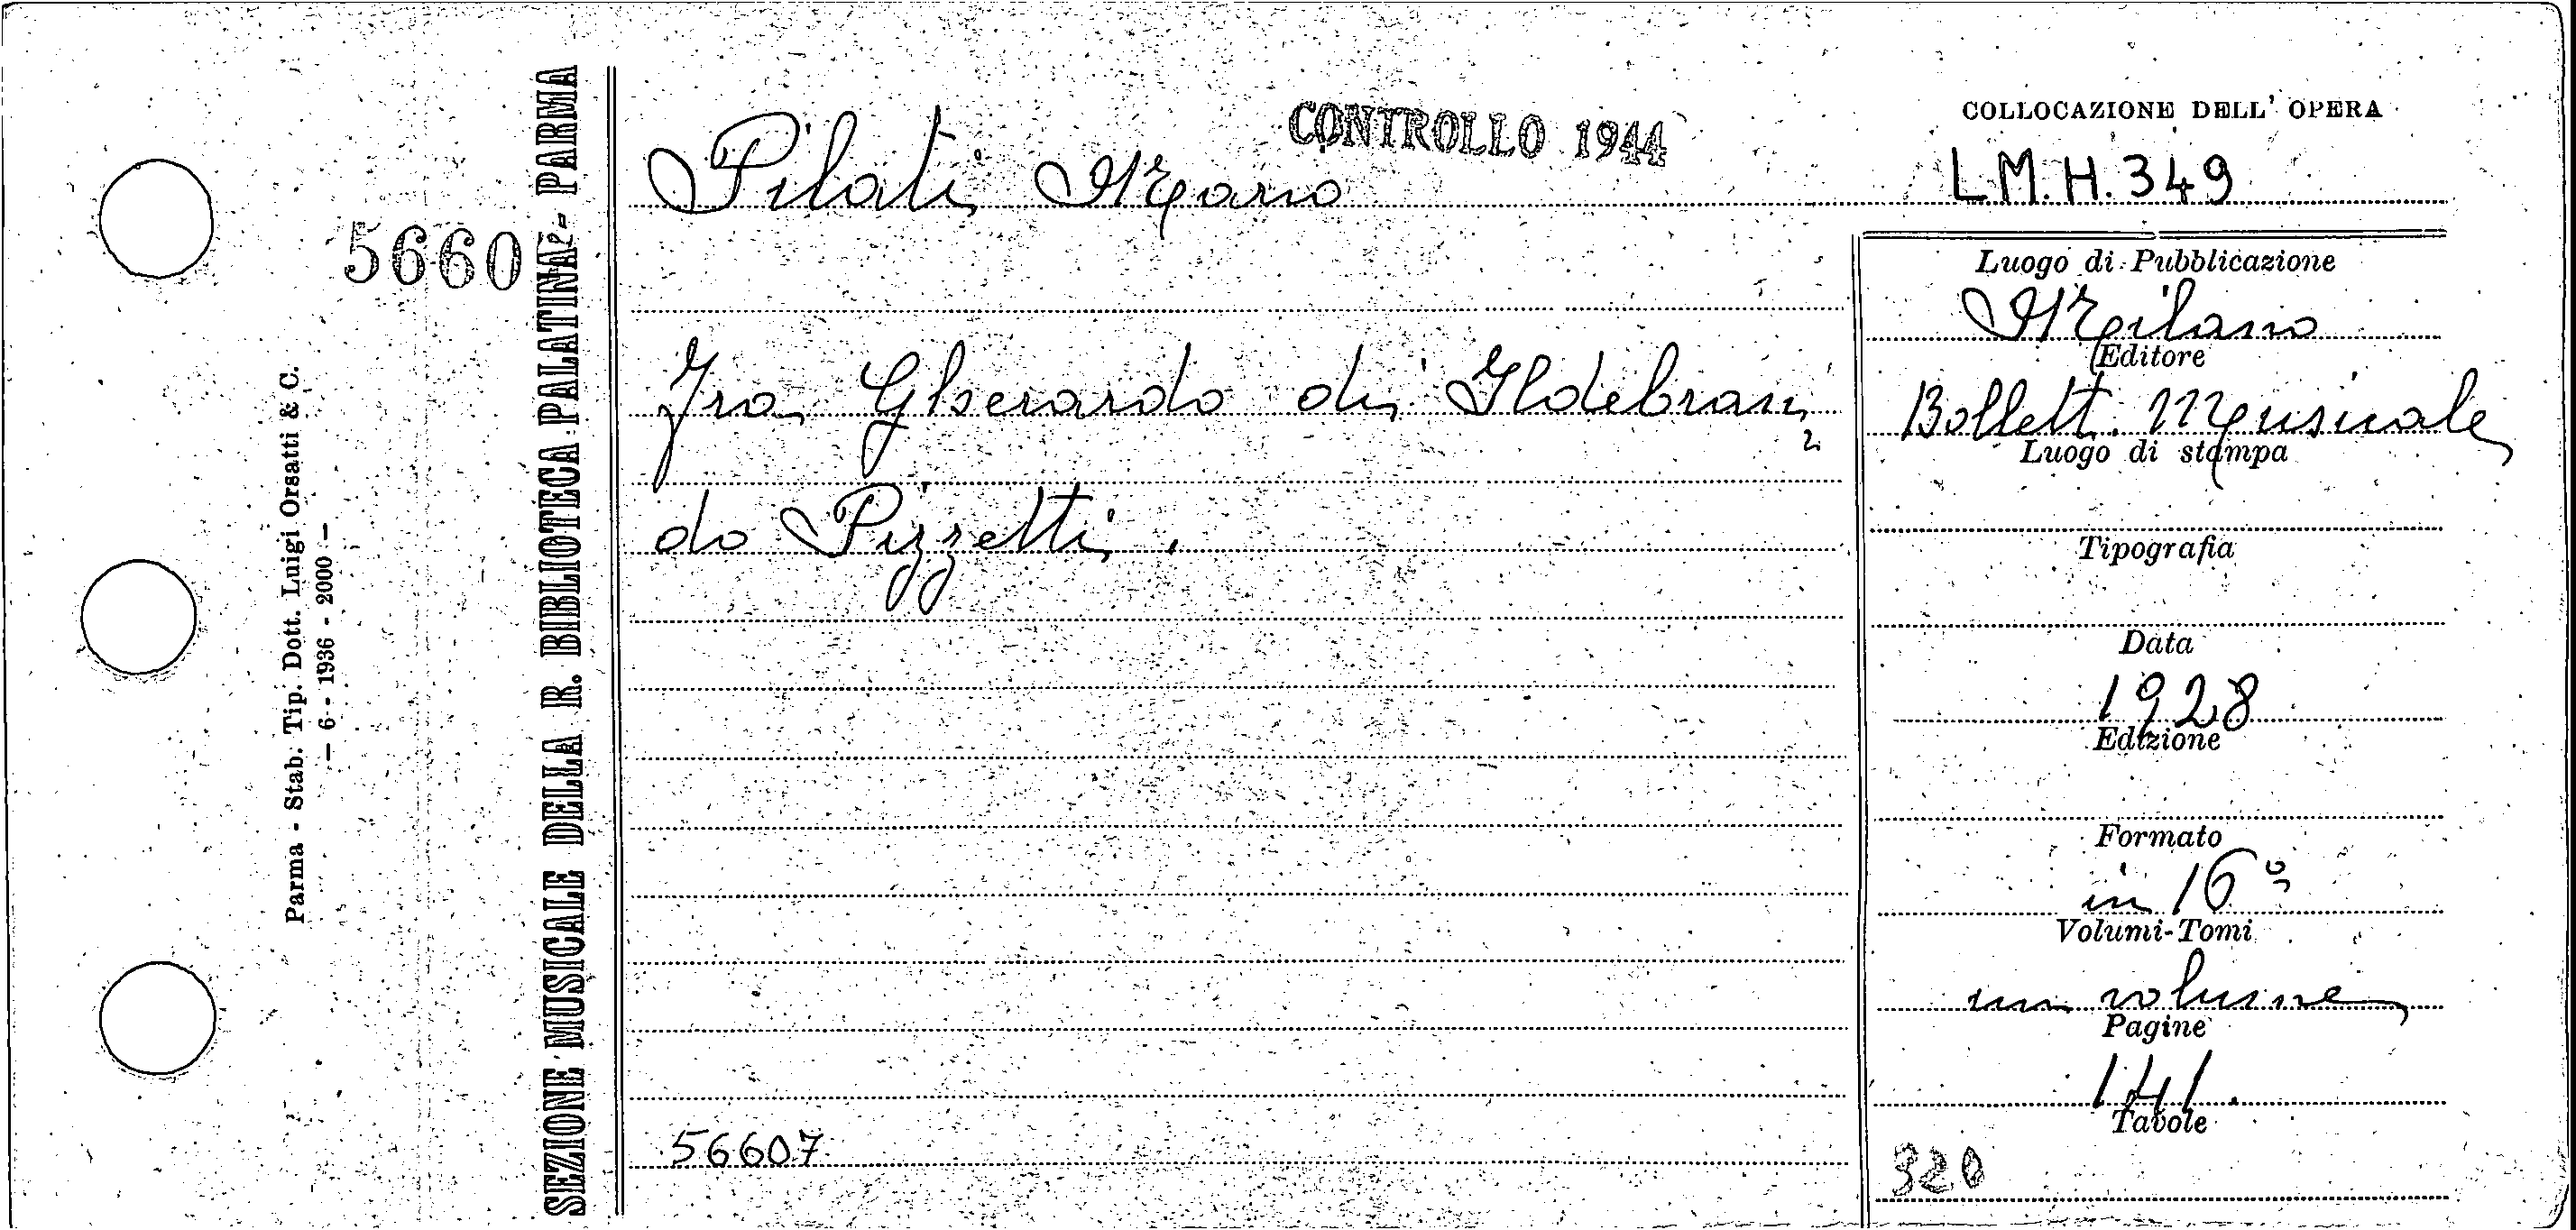 CONTROLLO 1944
COLLOCAZIONE DELL' OPERA
Pilati Mario
LM.H.349
5660
Luogo di Pubblicazione
Milano
Editore
Fra Gherardo di Ildebran
Bollett. Musicale
Luogo di stampa
do Pizzetti.
Tipografia
Data
1928
Edizione
Formato
in 16°
Volumi-Tomi
un volume
Pagine
141.
Tavole
56607
320
SEZIONE MUSICALE DELLA R. BIBLIOTECA PALATINA - PARMA
Parma - Stab. Tip. Dott. Luigi Orsatti & C.
— 6 - 1936 - 2000 —